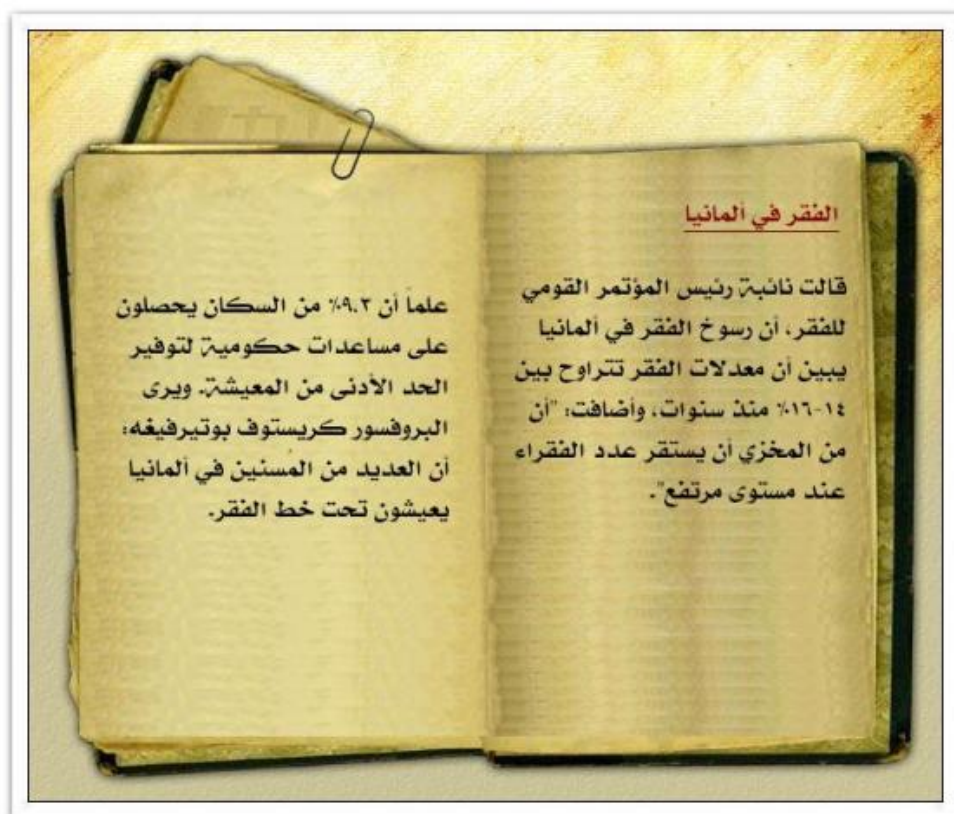 الفقر في ألمانيا
قالت نائبة رئيس المؤتمر القومي
للفقر، أن رسوخ الفقر في ألمانيا
يبين أن معدلات الفقر تتراوح بين
١٤-١٦٪ منذ سنوات، وأضافت: "أن
من المخزي أن يستقر عدد الفقراء
عند مستوى مرتفع".
علماً أن ٩.٣٪ من السكان يحصلون
على مساعدات حكومية لتوفير
الحد الأدنى من المعيشة. ويرى
البروفسور كريستوف بوتيرفيغه:
أن العديد من المسنين في ألمانيا
يعيشون تحت خط الفقر.